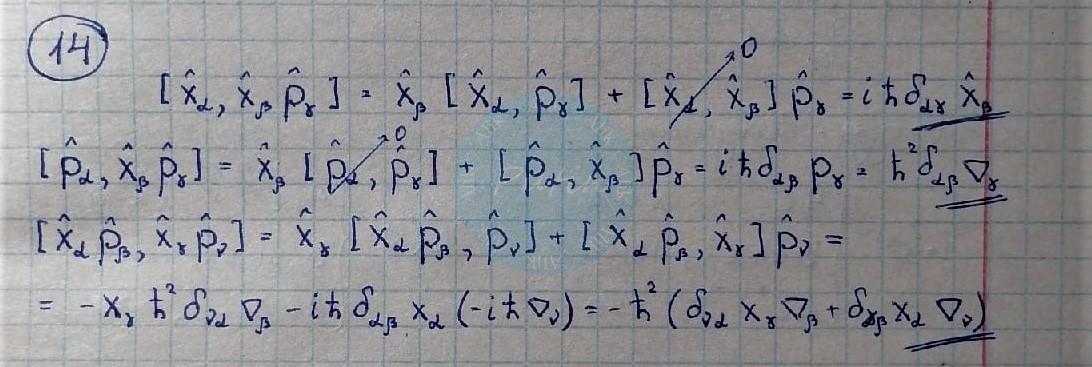 14
[x̂_α, x̂_β p̂_γ] = x̂_β [x̂_α, p̂_γ] + [x̂_α, x̂_β] p̂_γ = iħ δ_αγ x̂_β
[p̂_α, x̂_β p̂_γ] = x̂_β [p̂_α, p̂_γ] + [p̂_α, x̂_β] p̂_γ = iħ δ_αβ p_γ = ħ² δ_αβ ∇_γ
[x̂_α p̂_β, x̂_γ p̂_ν] = x̂_γ [x̂_α p̂_β, p̂_ν] + [x̂_α p̂_β, x̂_γ] p̂_ν =
= - x_γ ħ² δ_να ∇_β - iħ δ_αβ x_α (-iħ ∇_ν) = - ħ² (δ_να x_γ ∇_β + δ_γβ x_α ∇_ν)